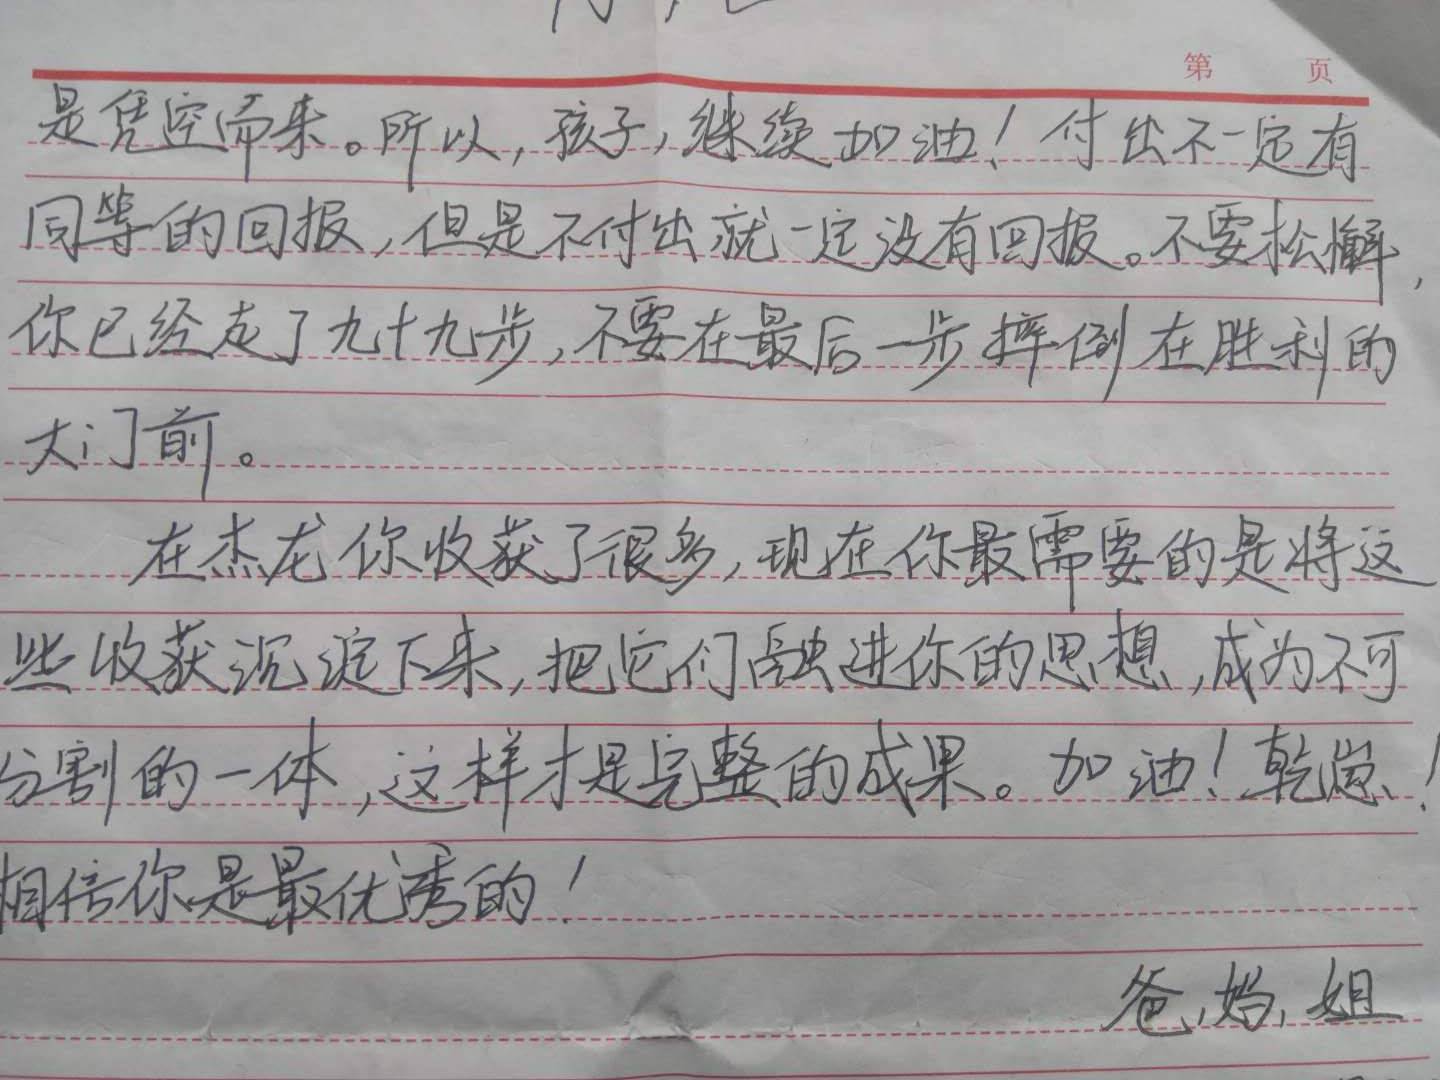 第 页
是凭空而来。所以,孩子,继续加油!付出不一定有
同等的回报,但是不付出就一定没有回报。不要松懈,
你已经走了九十九步,不要在最后一步摔倒在胜利的
大门前。
在杰龙你收获了很多,现在你最需要的是将这
些收获沉淀下来,把它们融进你的思想,成为不可
分割的一体,这样才是完整的成果。加油!乾!
相信你是最优秀的!
爸,妈,姐